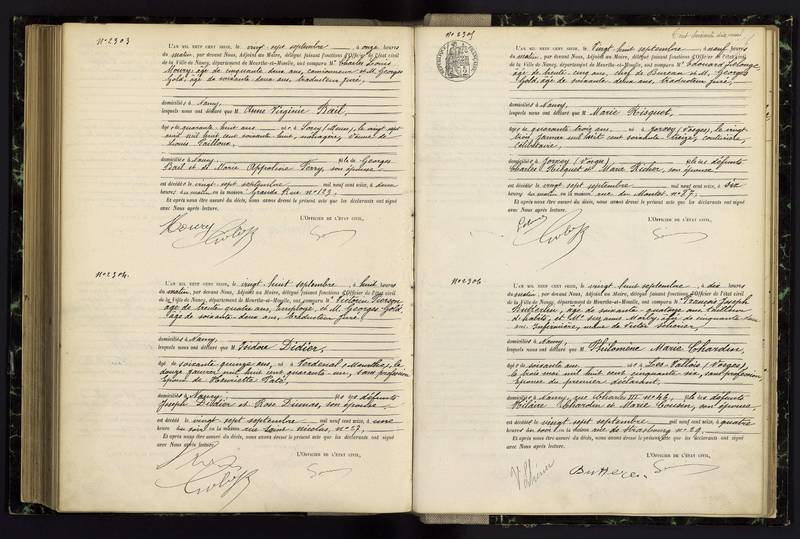 N° 2303
L'AN MIL NEUF CENT SEIZE, le vingt sept septembre à onze heures
du matin, par devant Nous, Adjoint au Maire, délégué faisant fonctions d'Officier de l'état civil
de la Ville de Nancy, département de Meurthe-et-Moselle, ont comparu M. Charles Louis
Moury, âgé de cinquante deux ans, camionneur et M. Georges
Gold, âgé de soixante deux ans, traducteur juré,
domiciliés à Nancy,
lesquels nous ont déclaré que M Anne Virginie Bail,
âgé de quarante huit ans né à Sorcy (Meuse), le vingt sept
mil huit cent soixante huit, ménagère, veuve de
Louis
domiciliée à Nancy, fille de Georges
Bail et de Marie Appoline Ferry, son épouse
est décédée le vingt sept septembre mil neuf cent seize, à deux
heures du matin, en la maison Grande Rue n° 123.
Et après nous être assuré du décès, nous avons dressé le présent acte que les déclarants ont signé
avec Nous après lecture.
L'OFFICIER DE L'ÉTAT CIVIL,
Moury
N° 2304
L'AN MIL NEUF CENT SEIZE, le vingt huit septembre, à huit heures
du matin, par devant Nous, Adjoint au Maire, délégué faisant fonctions d'Officier de l'état civil
de la Ville de Nancy, département de Meurthe-et-Moselle, ont comparu M. Victorin
âgé de trente quatre ans, employé, et M. Georges Gold,
âgé de soixante deux ans, traducteur juré,
domiciliés à Nancy,
lesquels nous ont déclaré que M Isidore Didier,
âgé de soixante quinze ans né à Verdenal (Meurthe), le
douze janvier mil huit cent quarante un, sans profession
époux de Henriette
domicilié à Nancy, fils de défunts
Joseph Didier et Rose Dumas, son épouse
est décédé le vingt sept septembre mil neuf cent seize, à une
heure du soir en la maison rue Saint Nicolas, n° 27.
Et après nous être assuré du décès, nous avons dressé le présent acte que les déclarants ont signé
avec Nous après lecture.
L'OFFICIER DE L'ÉTAT CIVIL,
Cent soixante dix neuf
N° 2305
L'AN MIL NEUF CENT SEIZE, le vingt huit septembre à neuf heures
du matin, par devant Nous, Adjoint au Maire, délégué faisant fonctions d'Officier de l'état civil
de la Ville de Nancy, département de Meurthe-et-Moselle, ont comparu M. Edouard
âgé de trente cinq ans, chef de Bureau et M. Georges
Gold, âgé de soixante deux ans, traducteur juré,
domiciliés à Nancy,
lesquels nous ont déclaré que M Marie Hisquet,
âgé de quarante trois ans, né à Jorxey (Vosges), le vingt
trois janvier mil huit cent soixante treize, couturière,
célibataire,
domiciliée à Jorxey (Vosges) fille de défunts
Charles Hisquet et Marie Richer, son épouse
est décédée le vingt sept septembre mil neuf cent seize, à dix
heures du matin en la maison rue de n° 37.
Et après nous être assuré du décès, nous avons dressé le présent acte que les déclarants ont signé
avec Nous après lecture.
L'OFFICIER DE L'ÉTAT CIVIL,
N° 2306
L'AN MIL NEUF CENT SEIZE, le vingt huit septembre, à dix heures
du matin, par devant Nous, Adjoint au Maire, délégué faisant fonctions d'Officier de l'état civil
de la Ville de Nancy, département de Meurthe-et-Moselle, ont comparu M. François Joseph
âgé de soixante quatorze ans tailleur
d'habits, et âgée de cinquante
ans infirmière, de Victor
domiciliés à Nancy,
lesquels nous ont déclaré que M Philomène Marie Chardin,
âgé de soixante ans né à Les Vallois (Vosges)
le trois mil huit cent cinquante six, sans profession
épouse du premier déclarant,
domiciliée à Nancy, rue Charles III n° 46, fille de défunts
Hilaire Chardin et Marie Cousin, son épouse
est décédée le vingt sept septembre mil neuf cent seize, à quatre
heures du soir en la maison rue de Strasbourg n° 29.
Et après nous être assuré du décès, nous avons dressé le présent acte que les déclarants ont signé
avec Nous après lecture.
L'OFFICIER DE L'ÉTAT CIVIL,